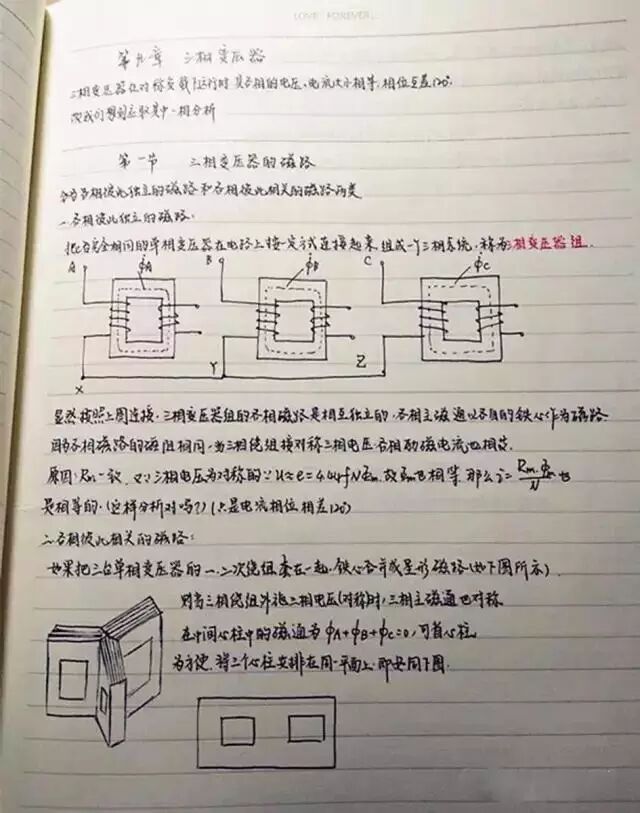 LOVE FOREVER...
第九章 三相变压器
三相变压器在对称负载下运行时,其各相的电压、电流大小相等,相位互差120°.
故我们想到应取其中一相分析
第一节 三相变压器的磁路
分为各相彼此独立的磁路和各相彼此相关的磁路两类
一、各相彼此独立的磁路.
把三台完全相同的单相变压器在电路上按一定方式连接起来,组成一个三相系统,称为三相变压器组.
A φ̇A B φ̇B C φ̇C
X Y Z
显然按照上图连接,三相变压器组的各相磁路是相互独立的,各相主磁通以各自的铁心作为磁路.
因为各相磁路的磁阻相同,当三相绕组接对称三相电压,各相励磁电流也相等.
原因:Rm一致,又∵三相电压为对称的∵U≈e=4.44fNΦm.故Φm也相等,那么i=Rm·Φm/N也
是相等的.(这样分析对吗?)(只是电流相位相差120°)
二、各相彼此相关的磁路:
如果把三台单相变压器的一、二次绕组套在一起,铁心合并成星形磁路(如下图所示)
则当三相绕组外施三相电压(对称)时,三相主磁通也对称.
在中间心柱中的磁通为φ̇A+φ̇B+φ̇C=0,可省心柱.
为方便,将三个心柱安排在同一平面上,即如同下图.